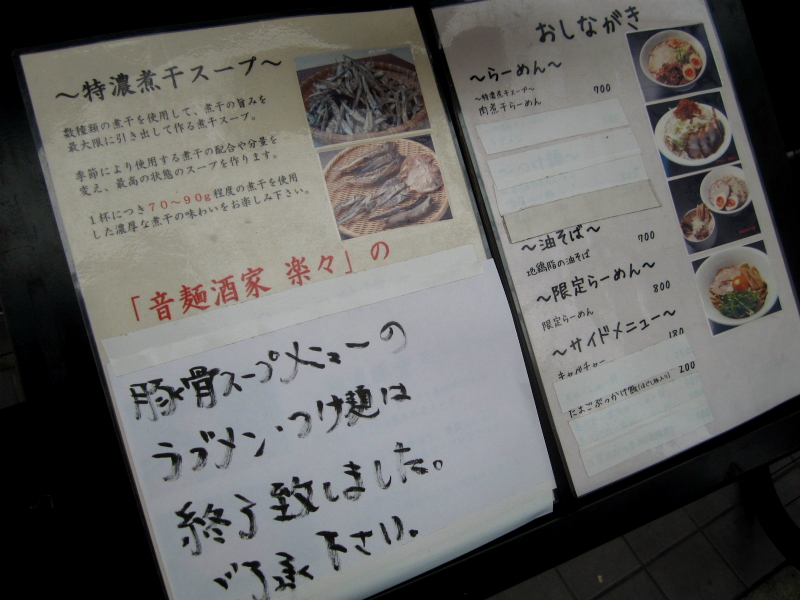 ～特濃煮干スープ～
数種類の煮干を使用して、煮干の旨みを
最大限に引き出して作る煮干スープ。
季節により使用する煮干の配合や分量を
変え、最高の状態のスープを作ります。
1杯につき70～90g程度の煮干を使用
した濃厚な煮干の味わいをお楽しみ下さい。
「音麺酒家 楽々」の
豚骨スープメニューの
ラブメン・つけ麺は
終了致しました。
ご了承下さい。
おしながき
～らーめん～
～特濃煮干スープ～
肉煮干らーめん 700
～油そば～
地鶏脂の油そば 700
～限定らーめん～
限定らーめん 800
～サイドメニュー～
キャベチャー 180
たまごぶっかけ飯 200